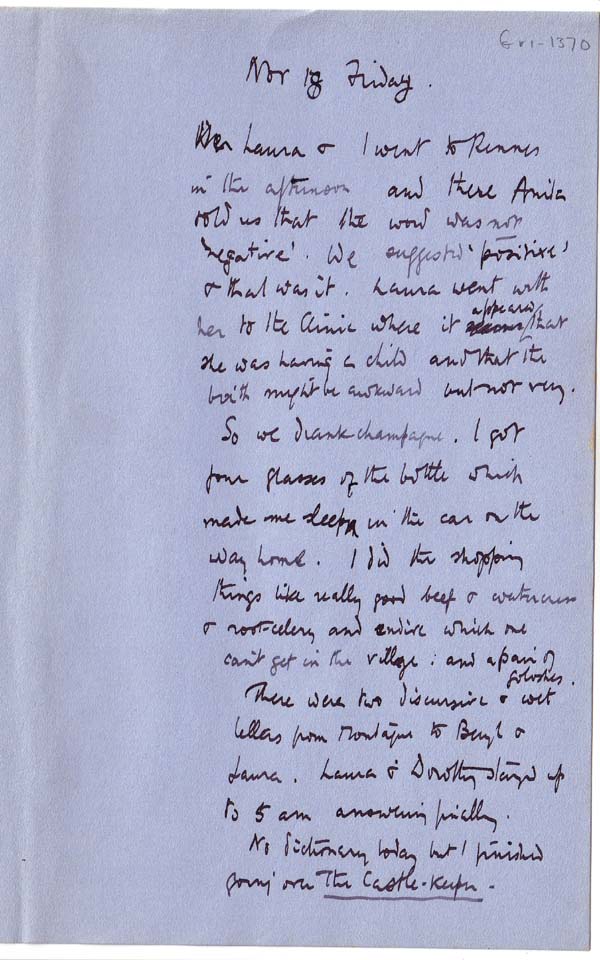 Gri-1370
Nov 18 Friday.
Laura & I went to Rennes
in the afternoon and there Anita
told us that the word was not
'negative'. We suggested 'positive'
& that was it. Laura went with
her to the Clinic where it appeared that
she was having a child and that the
birth might be awkward but not very.
So we drank champagne. I got
four glasses of the bottle which
made me sleepy in the car on the
way home. I did the shopping
things like really good beef & watercress
& root-celery and endive which one
can't get in the village : and a pair of
goloshes.
There were two discursive & wet
letters from Montague to Beryl &
Laura. Laura & Dorothy stayed up
to 5 am answering finally.
No dictionary today but I finished
going over The Castle-Keeper.